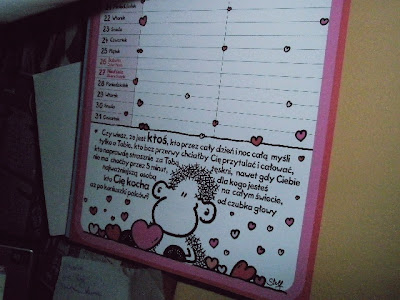 Poniedziałek
22 Wtorek
23 Środa
24 Czwartek
25 Piątek
26 Sobota
27 Niedziela
28 Poniedziałek
29 Wtorek
30 Środa
31 Czwartek
* Czy wiesz, że jest ktoś, kto przez cały dzień i noc całą myśli
tylko o Tobie, kto bez przerwy chciałby Cię przytulać i całować,
kto naprawdę strasznie za Tobą tęskni, nawet gdy Ciebie
nie ma choćby przez 5 minut, dla kogo jesteś
najważniejszą osobą na całym świecie,
kto Cię kocha od czubka głowy
aż po koniuszki palców?